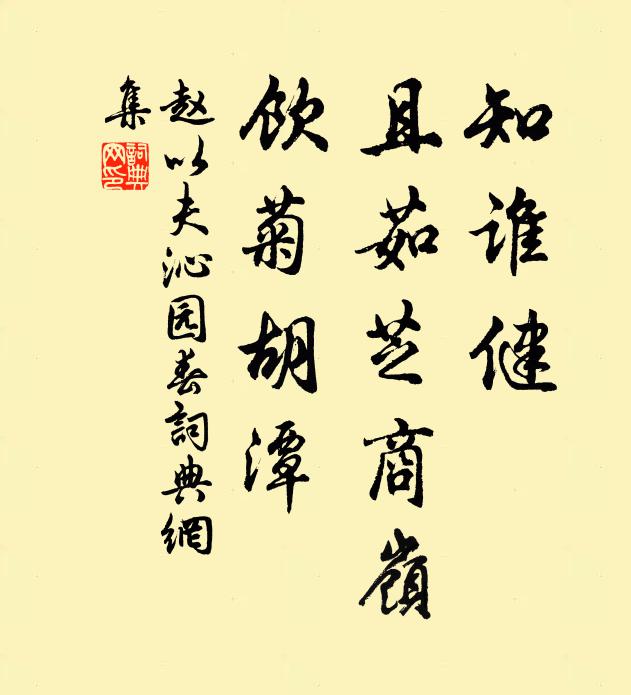 知谁健
且茹芝商嶺
饮菊胡潭
赵以夫沁园春詞典網
集
詞典
网印